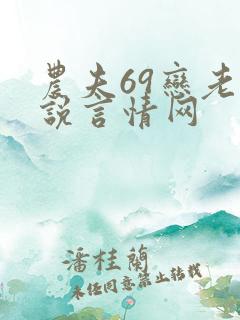 農夫69戀老
說言情网
潘桂蘭
未经同意禁止转载